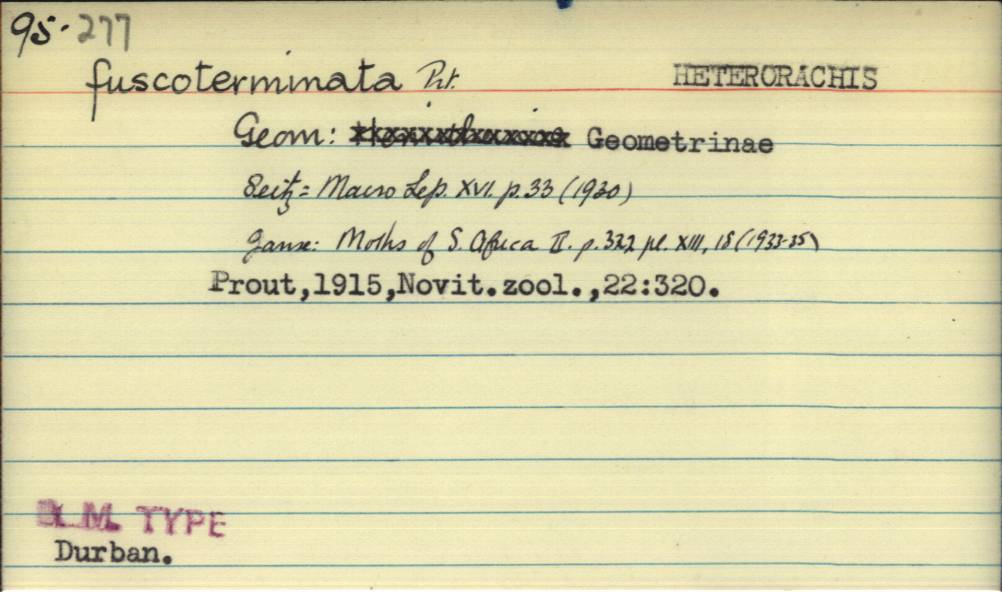 95.277
fuscoterminata Prt. HETERORACHIS
Geom: Geometrinae
Seitz= Macro Lep. XVI. p.33 (1930)
Janse: Moths of S. Africa II. p.322 pl. XIII, 18 (1933-35)
Prout,1915,Novit.zool.,22:320.
B.M. TYPE
Durban.